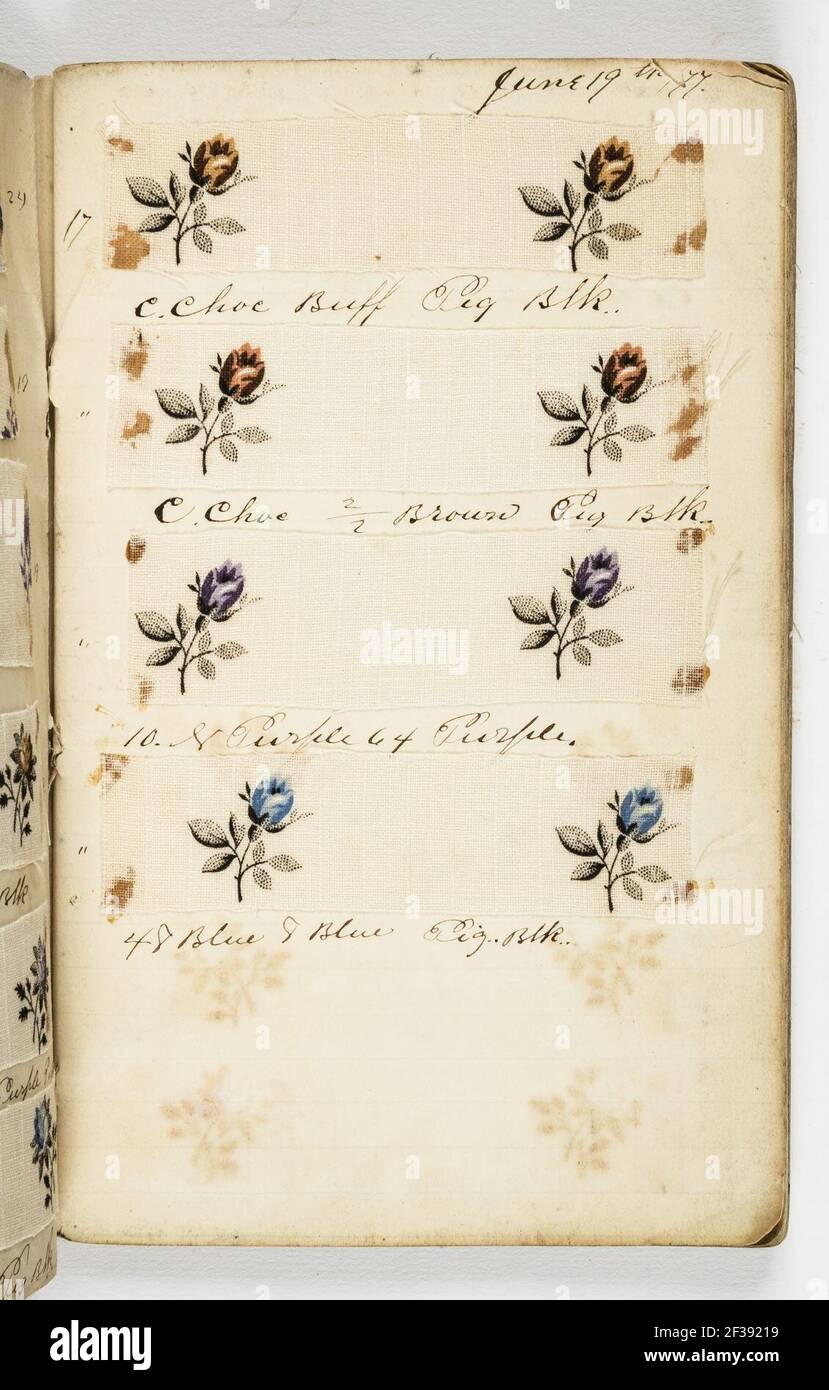 June 19th, 77.
24
17
C. Choc Buff Pig Blk.
19
"
C. Choc 2/2 Brown Pig Blk.
"
10. N Purple 64 Purple.
"
Blk
48 Blue 8 Blue Pig. Blk.
Purple
Pig Blk
alamy
alamy
Image ID: 2F39219
www.alamy.com